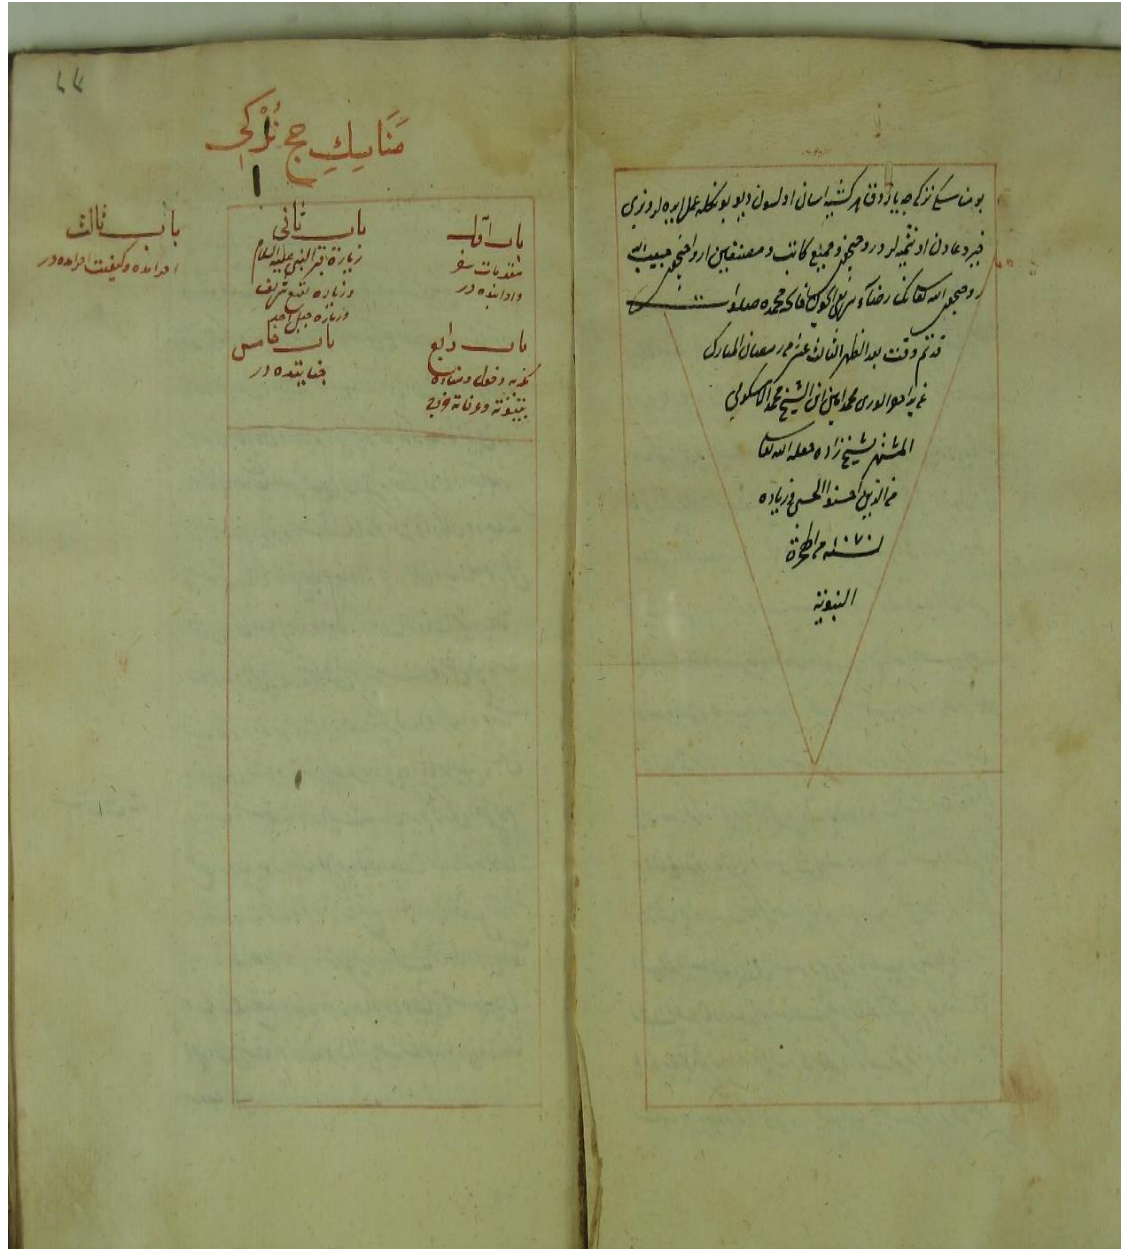 بو مناسكى تركجه يازدق هر كشيه اسان اولسون ديو بونكله عمل ايده لر و بزى
خير دعادن اونتميه لر و روحيچون و جميع كاتب و مصنفين ارواحيچون حبيب الله
روحيچون الله تعالى رضاء شريفيچون الفاتحه محمده صلوات
قد تم وقت بعد الظهر الثالث عشر من رمضان المبارك
عن يد احقر الورى محمد امين ابن الشيخ محمد الاسكوبي
المشتهر بشيخ زاده جعله الله تعالى
من الذين احسنوا الحسنى و زياده
لسنه ١٠٧٠ من الهجرة
النبوية
مَنَاسِكِ حج تُرْكِى
باب اول
مقدمات سفر
و ادابنده در
باب ثانى
زيارة قبر النبى عليه السلام
و زياده بقيع شريف
و زيارة جبل احد
باب ثالث
احرامده و كيفيت احرامده در
باب رابع
مكه يه دخول و مناده
بيتوتة و عرفاته خروج
باب خامس
جنايتده در